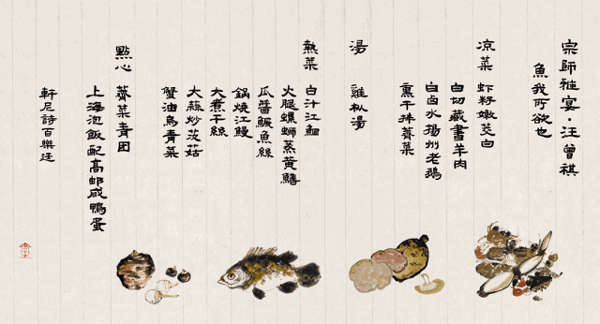 宗師雅宴·汪曾祺
魚我所欲也
凉菜 虾籽嫩茭白
白切藏書羊肉
白卤水揚州老鵝
熏干拌薺菜
湯 雞枞湯
熱菜 白汁江鮰
火腿螺螄蒸黄鱔
瓜薑鱖魚絲
鍋燒江鰻
大煮干絲
大蒜炒茨菇
蟹油烏青菜
點心 薺菜青团
上海泡飯配高邮咸鴨蛋
軒尼詩百樂廷